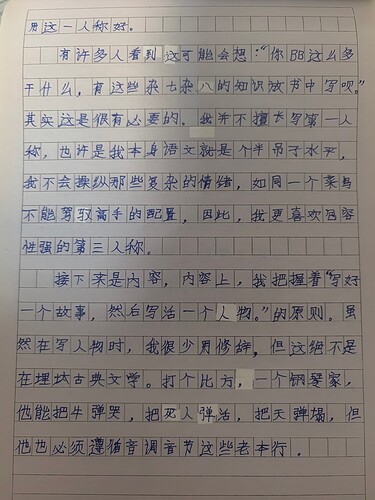 用这一人称好。
有许多人看到这可能会想："你BB这么多
干什么，有这些杂七杂八的知识放书中写呗。"
其实这是很有必要的。我并不擅长写第一人
称，也许是我本身语文就是个半吊子水平，
我不会操纵那些复杂的情绪，如同一个菜鸟
不能驾驭高手的配置，因此，我更喜欢包容
性强的第三人称。
接下来是内容，内容上，我把握着"写好
一个故事，然后写活一个人物。"的原则。虽
然在写人物时，我很少用修辞，但这绝不是
在埋汰古典文学。打个比方，一个钢琴家，
他能把牛弹哭，把死人弹活，把天弹塌，但
他也必须遵循音调音节这些老本行。